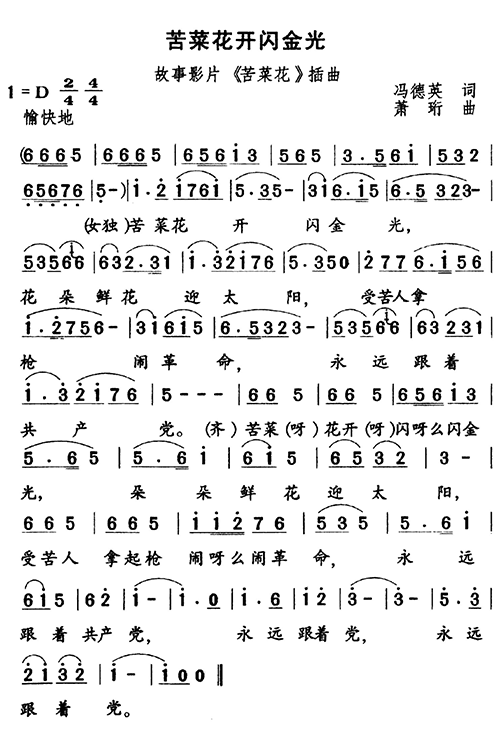 苦菜花开闪金光
故事影片《苦菜花》插曲
1=D 2/4 4/4 冯德英 词
愉快地 萧珩 曲
(6665 | 6665 | 656i3 | 565 | 3.56i | 532 |
65676 | 5-) | i.2 i76i | 5.35- | 3i6.i5 | 6.5 323- |
(女独)苦菜花 开 闪金 光,
53566 | 632.31 | i.32i76 | 5.350 | 2776.i56 |
花朵鲜花 迎太 阳, 受苦人拿
i.2756- | 3i6i5 | 6.532- | 53566 | 63231 |
枪 闹革 命, 永远 跟着
i.32i76 | 5--- | 665 | 665 | 656i3 |
共产 党。(齐)苦菜(呀)花开(呀)闪呀么闪金
5.65 | 5.6i | 665 | 6532 | 3- |
光, 朵 朵鲜花迎太 阳,
665 | 535 | ii2i76 | 535 | 5.6i |
受苦人 拿起枪 闹呀么闹革 命, 永 远
6i5 | 62 | i- | i.0 | i.6 | i2 | 3.0 | 5.3 |
跟着共产 党, 永远 跟着 党, 永远
2i32 | i- | i00 ||
跟着 党。